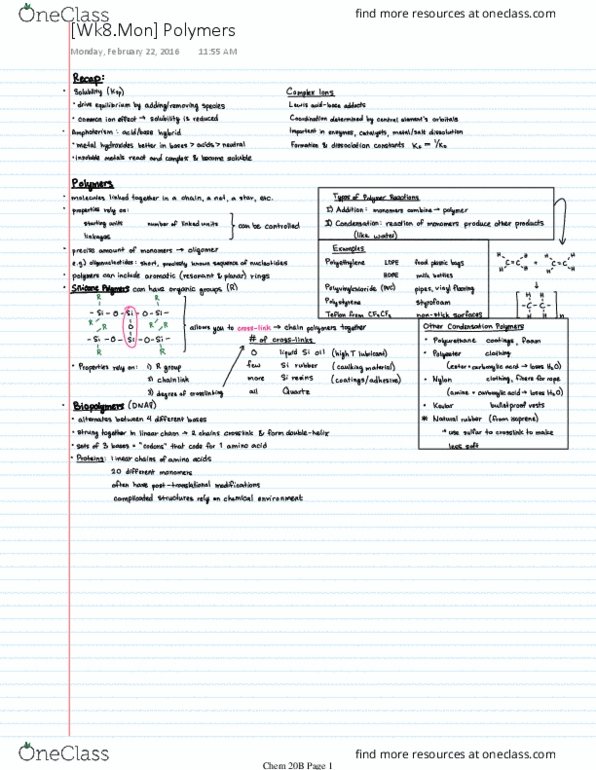 OneClass
find more resources at oneclass.com
[Wk8.Mon] Polymers
Monday, February 22, 2016 11:55 AM
Recap:
• Solubility (Ksp)
• drive equilibrium by adding/removing species
• common ion effect → solubility is reduced
• Amphoterism: acid/base hybrid
• metal hydroxides better in bases > acids > neutral
• insoluble metals react and complex & become soluble
Complex Ions
Lewis acid-base adducts
Coordination determined by central element's orbitals
Important in enzymes, catalysts, metal/salt dissolution
Formation & dissociation constants Kf = 1/Kd
Polymers
• molecules linked together in a chain, a net, a star, etc.
• properties rely on:
starting units number of linked units
linkages
can be controlled
• precise amount of monomers → oligomer
e.g.) oligonucleotides: short, precisely known sequence of nucleotides
• polymers can include aromatic (resonant & planar) rings
• Silicone Polymers can have organic groups (R)
R R
-Si-O-Si-O-Si-
R O R/R
-Si-O-Si-O-Si-
R R R
allows you to cross-link → chain polymers together
• Properties rely on: 1) R group
2) chain link
3) degree of crosslinking
# of cross-links
0 liquid Si oil (high T lubricant)
few Si rubber (caulking material)
more Si resins (coatings/adhesive)
all Quartz
Types of Polymer Reactions
1) Addition: monomers combine → polymer
2) Condensation: reaction of monomers produce other products
(like water)
Examples
Polyethylene LDPE food plastic bags
HDPE milk bottles
Polyvinylchloride (PVC) pipes, vinyl flooring
Polystyrene styrofoam
Teflon from CF2CF2 non-stick surfaces
H H H H
C=C + C=C
H H H H
↓
H H
-C-C-
H H n
Other Condensation Polymers
• Polyurethane coatings, foam
• Polyester clothing
(ester + carboxylic acid → loses H2O)
• Nylon clothing, fibers for rope
(amine + carboxylic acid → loses H2O)
• Kevlar bulletproof vests
* Natural rubber (from isoprene)
→ use sulfur to crosslink to make
less soft
• Biopolymers (DNA)
• alternates between 4 different bases
• strung together in linear chain → 2 chains crosslink & form double-helix
• sets of 3 bases = "codons" that code for 1 amino acid
• Proteins: linear chains of amino acids
20 different monomers
often have post-translational modifications
complicated structures rely on chemical environment
OneClass
find more resources at oneclass.com
Chem 20B Page 1